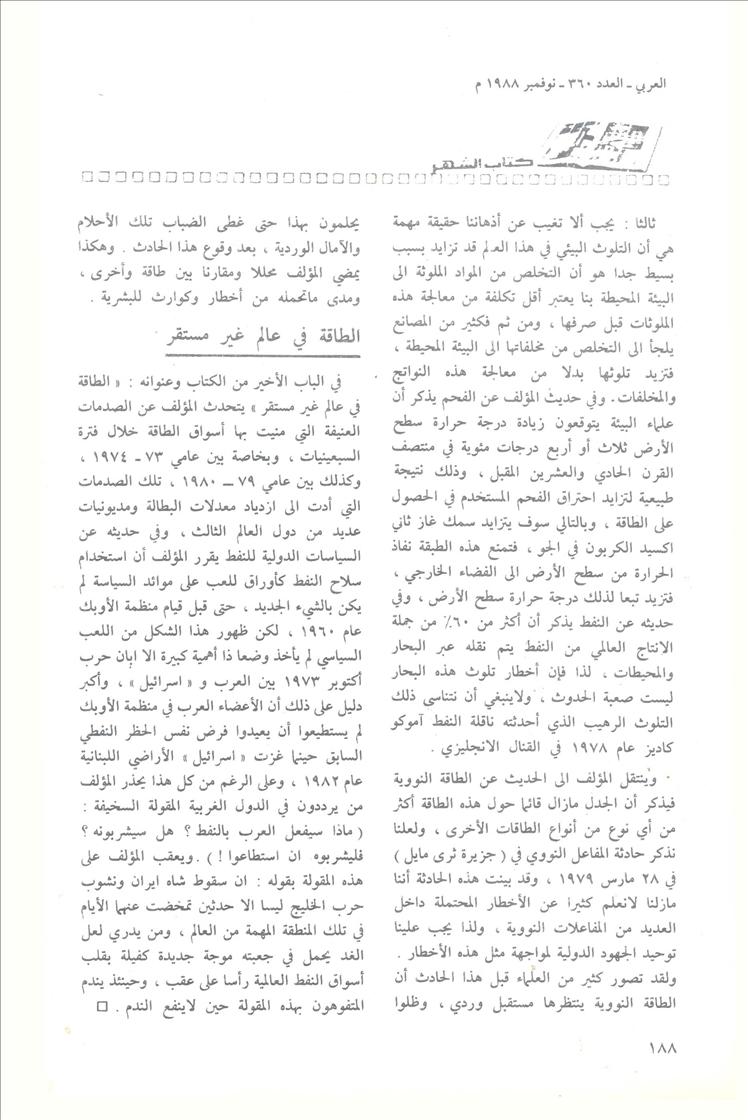 العربي ـ العدد ٣٦٠ ـ نوفمبر ١٩٨٨ م
كتاب الشهر
ثالثا : يجب ألا تغيب عن أذهاننا حقيقة مهمة
هي أن التلوث البيئي في هذا العالم قد تزايد بسبب
بسيط جدا هو أن التخلص من المواد الملوثة الى
البيئة المحيطة بنا يعتبر أقل تكلفة من معالجة هذه
الملوثات قبل صرفها ، ومن ثم فكثير من المصانع
يلجأ الى التخلص من مخلفاتها الى البيئة المحيطة ،
فتزيد تلوثها بدلا من معالجة هذه النواتج
والمخلفات. وفي حديث المؤلف عن الفحم يذكر أن
علماء البيئة يتوقعون زيادة درجة حرارة سطح
الأرض ثلاث أو أربع درجات مئوية في منتصف
القرن الحادي والعشرين المقبل ، وذلك نتيجة
طبيعية لتزايد احتراق الفحم المستخدم في الحصول
على الطاقة ، وبالتالي سوف يتزايد سمك غاز ثاني
اكسيد الكربون في الجو ، فتمنع هذه الطبقة نفاذ
الحرارة من سطح الأرض الى الفضاء الخارجي ،
فتزيد تبعا لذلك درجة حرارة سطح الأرض ، وفي
حديثه عن النفط يذكر أن أكثر من ٦٠٪ من جملة
الانتاج العالمي من النفط يتم نقله عبر البحار
والمحيطات ، لذا فإن أخطار تلوث هذه البحار
ليست صعبة الحدوث ، ولاينبغي أن نتناسى ذلك
التلوث الرهيب الذي أحدثته ناقلة النفط آموكو
كاديز عام ١٩٧٨ في القنال الانجليزي .
وينتقل المؤلف الى الحديث عن الطاقة النووية
فيذكر أن الجدل مازال قائما حول هذه الطاقة أكثر
من أي نوع من أنواع الطاقات الأخرى ، ولعلنا
نذكر حادثة المفاعل النووي في ( جزيرة ثرى مايل )
في ٢٨ مارس ١٩٧٩ ، وقد بينت هذه الحادثة أننا
مازلنا لانعلم كثيرا عن الأخطار المحتملة داخل
العديد من المفاعلات النووية ، ولذا يجب علينا
توحيد الجهود الدولية لمواجهة مثل هذه الأخطار .
ولقد تصور كثير من العلماء قبل هذا الحادث أن
الطاقة النووية ينتظرها مستقبل وردي ، وظلوا
يحلمون بهذا حتى غطى الضباب تلك الأحلام
والآمال الوردية ، بعد وقوع هذا الحادث . وهكذا
يمضي المؤلف محللا ومقارنا بين طاقة وأخرى ،
ومدى ماتحمله من أخطار وكوارث للبشرية .
الطاقة في عالم غير مستقر
في الباب الأخير من الكتاب وعنوانه : « الطاقة
في عالم غير مستقر » يتحدث المؤلف عن الصدمات
العنيفة التي منيت بها أسواق الطاقة خلال فترة
السبعينيات ، وبخاصة بين عامي ٧٣ ـ ١٩٧٤ ،
وكذلك بين عامي ٧٩ ــ ١٩٨٠ ، تلك الصدمات
التي أدت الى ازدياد معدلات البطالة ومديونيات
عديد من دول العالم الثالث ، وفي حديثه عن
السياسات الدولية للنفط يقرر المؤلف أن استخدام
سلاح النفط كأوراق للعب على موائد السياسة لم
يكن بالشيء الجديد ، حتى قبل قيام منظمة الأوبك
عام ١٩٦٠ ، لكن ظهور هذا الشكل من اللعب
السياسي لم يأخذ وضعا ذا أهمية كبيرة الا إبان حرب
أكتوبر ١٩٧٣ بين العرب و « اسرائيل » ، وأكبر
دليل على ذلك أن الأعضاء العرب في منظمة الأوبك
لم يستطيعوا أن يعيدوا فرض نفس الحظر النفطي
السابق حينما غزت « اسرائيل » الأراضي اللبنانية
عام ١٩٨٢ ، وعلى الرغم من كل هذا يحذر المؤلف
من يرددون في الدول الغربية المقولة السخيفة :
( ماذا سيفعل العرب بالنفط ؟ هل سيشربونه ؟
فليشربوه ان استطاعوا ! ) .ويعقب المؤلف على
هذه المقولة بقوله : ان سقوط شاه ايران ونشوب
حرب الخليج ليسا الا حدثين تمخضت عنهما الأيام
في تلك المنطقة المهمة من العالم ، ومن يدري لعل
الغد يحمل في جعبته موجة جديدة كفيلة بقلب
أسواق النفط العالمية رأسا على عقب ، وحينئذ يندم
المتفوهون بهذه المقولة حين لاينفع الندم . □
١٨٨